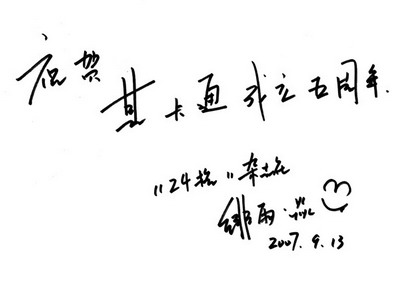 祝贺
其卡通成立五周年.
"24格"杂志
2007.9.13